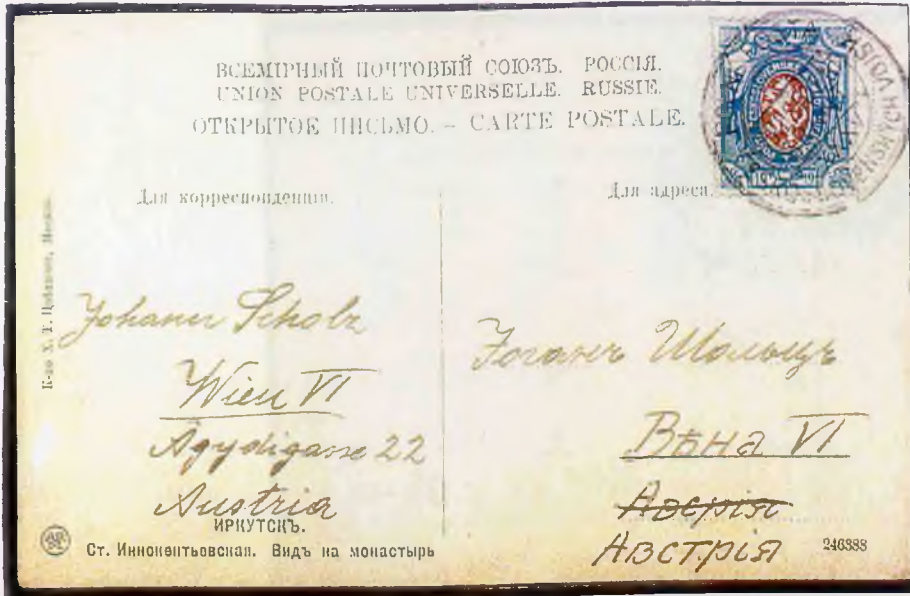 ВСЕМІРНЫЙ ПОЧТОВЫЙ СОЮЗЪ. РОССІЯ.
UNION POSTALE UNIVERSELLE. RUSSIE.
ОТКРЫТОЕ ПИСЬМО. – CARTE POSTALE.
Для корреспонденціи.
Для адреса.
Johann Scholz
Wien VI
Agydigasse 22
Austria
Іоганъ Шольцъ
Вѣна VI
Австрія
ИРКУТСКЪ.
Ст. Иннокентьевская. Видъ на монастырь
246388